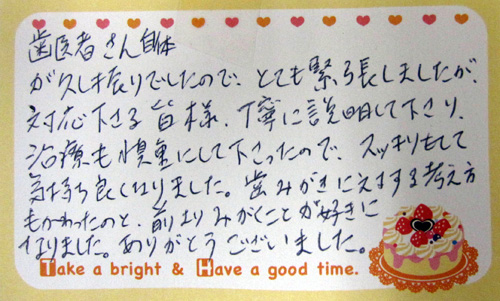 歯医者さん自体
が久し振りでしたので、とても緊張しましたが、
対応下さる皆様、丁寧に説明して下さり、
治療も慎重にして下さったので、スッキリもして
気持ち良くなりました。歯みがきに対する考え方
もかわったのと、前よりみがくことが好きに
なりました。ありがとうございました。
Take a bright & Have a good time.